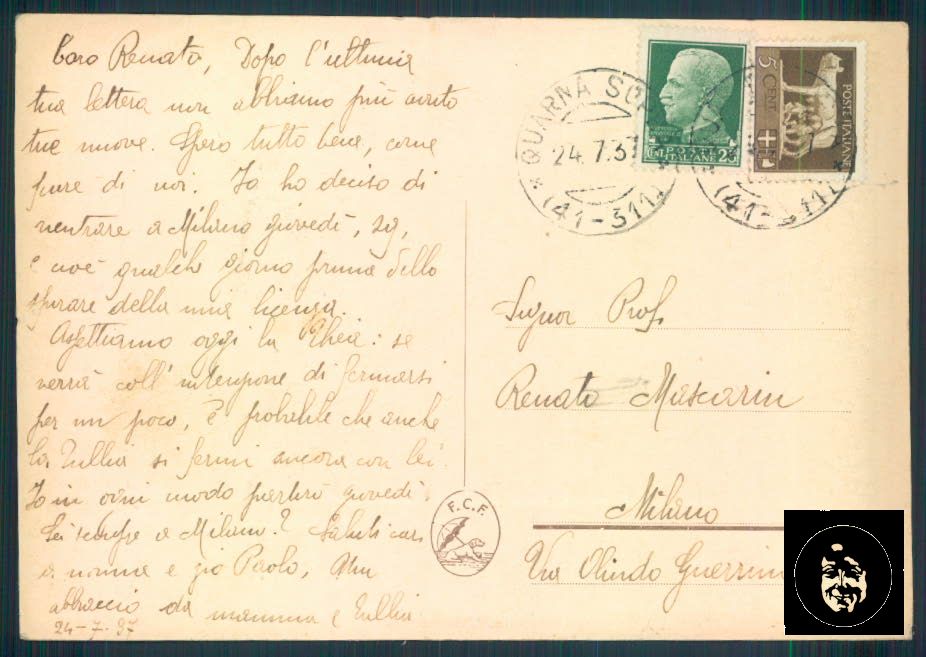 Caro Renato, Dopo l'ultima
tua lettera non abbiamo più avuto
tue nuove. Spero tutto bene, come
pure di noi. Io ho deciso di
rientrare a Milano giovedì, 29,
e cioè qualche giorno prima dello
spirare della mia licenza.
Aspettiamo oggi la Rhea: se
verrà coll'intenzione di fermarsi
per un poco, è probabile che anche
la Tullia si fermi ancora con lei.
Io in ogni modo partirò giovedì.
Sei sempre a Milano? Saluti cari
a nonna e zio Paolo, Un
abbraccio da mamma e Tullia
24-7-37
QUARNA SO
24.7.3
(41-311)
POSTE ITALIANE
CENT 25
5 CENT
POSTE ITALIANE
(41-311)
Signor Prof.
Renato Mascarin
Milano
Via Olindo Guerrini
F.C.F.